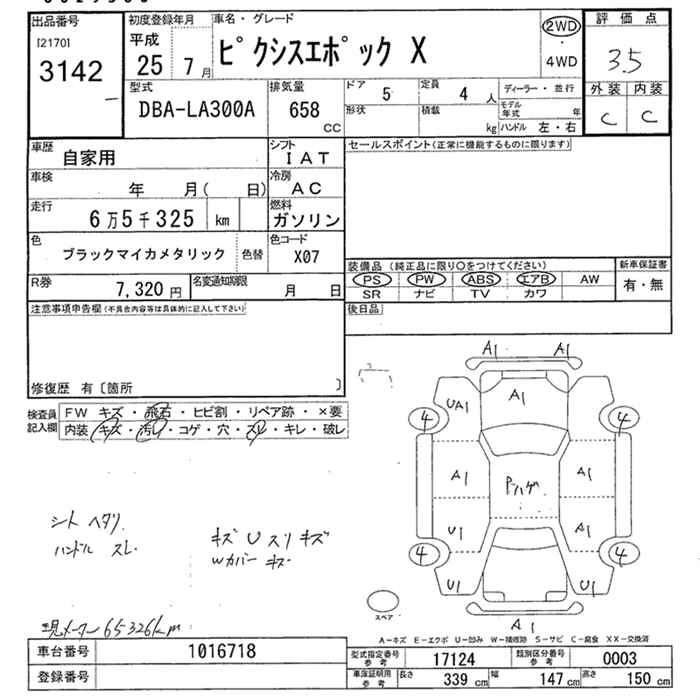 出品番号
[2170]
3142
初度登録年月
平成
25 7月
車名・グレード
ピクシスエポック X
2WD
・
4WD
評価点
3.5
外装 内装
C C
型式
DBA-LA300A
排気量
658
CC
ドア 5
定員 4 人
ディーラー・並行
モデル年式 年
形状
積載 kg
ハンドル 左・右
車歴
自家用
シフト
IAT
セールスポイント(正常に機能するものに限ります)
車検
年 月( 日)
冷房
AC
走行
6万5千325 km
燃料
ガソリン
色
ブラックマイカメタリック
色替
色コード
X07
装備品 (純正品に限り○をつけてください)
新車保証書
PS PW ABS エアB AW
有・無
SR ナビ TV カワ
R券
7,320 円
名変通知期限
月 日
後日品
注意事項申告欄(不具合内容等は具体的に記入して下さい)
修復歴 有〔箇所 〕
検査員記入欄
FW キズ・飛石・ヒビ割・リペア跡・×要
内装 キズ・汚れ・コゲ・穴・スレ・キレ・破レ
A1 A1
UA1 A1
4 4
A1 A1
Pハゲ
U1 A1
4 4
U1 U1
A1
スペア
シート ヘタリ
ハンドル スレ
キズ U スリキズ
Wカバー キズ
現メーター 65326km
A−キズ E−エクボ U−凹み W−補修跡 S−サビ C−腐食 XX−交換済
車台番号
1016718
登録番号
型式指定番号
参考
17124
類別区分番号
参考
0003
車庫証明用
参考
長さ 339 cm
幅 147 cm
高さ 150 cm